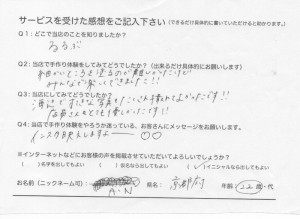 サービスを受けた感想をご記入下さい（できるだけ具体的に書いていただけると助かります。）
Q1：どこで当店のことを知りましたか？
るるぶ
Q2：当店で手作り体験をしてみてどうでしたか？（出来るだけ具体的にお願いします）
細かいところを塗るのが難しかったけど
みんなで楽しくできました！！
Q3：当店にしてみてどうでしたか？
海辺で すきな写真もたくさん撮れてよかったです！！
店員さんもとても優しかったです！！
Q4：当店で手作り体験をやろうか迷っている、お客さんにメッセージをお願いします。
インスタ映えしますよー
※インターネットなどにお客様の声を掲載させていただいてよろしいでしょうか？
）名字を出してもよい
）仮名なら出してもよい
）イニシャルなら出してもよい
お名前（ニックネーム可）：
A・N
県名：京都府
年齢（22）歳・代